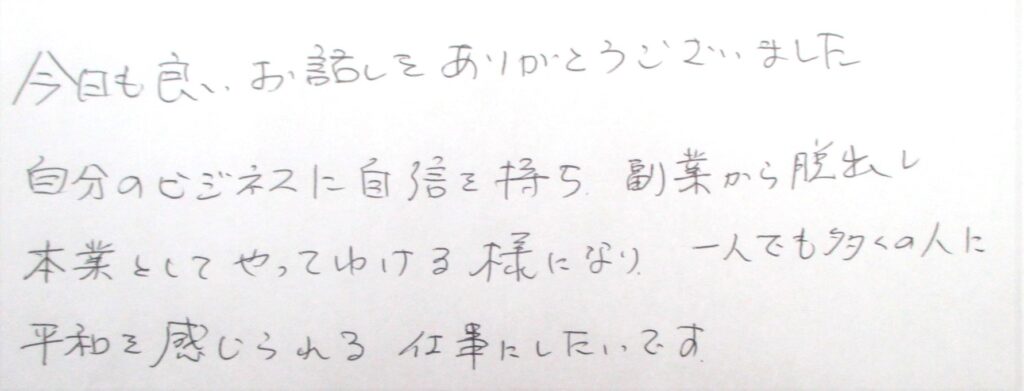 今日も良い、お話しをありがとうございました
自分のビジネスに自信を持ち、副業から脱出し
本業としてやってゆける様になり、一人でも多くの人に
平和を感じられる仕事にしたいです。